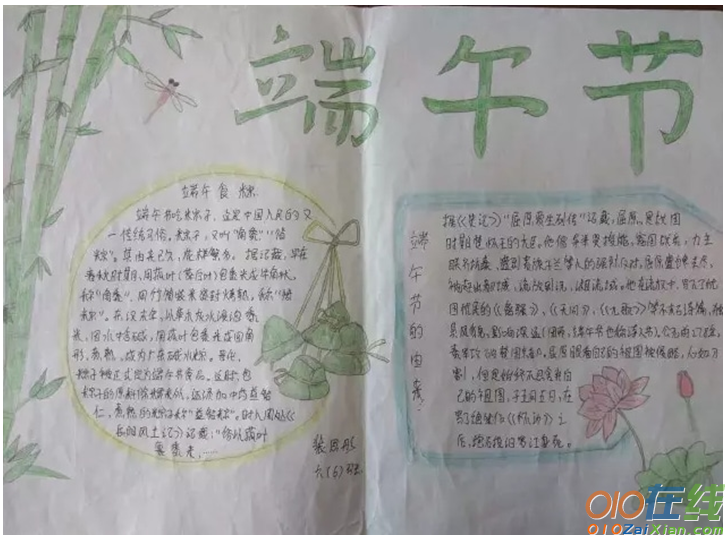 端午节
端午食粽
端午节吃粽子，这是中国人民的又
一传统习俗。粽子，又叫"角黍"、"筒
粽"。其由来已久，花样繁多。据记载，早在
春秋时期，用菰叶（茭白叶）包黍米成牛角状，
称"角黍"；用竹筒装米密封烤熟，称"筒
粽"。在汉末年，以草木灰水浸泡黍
米，因水中含碱，用菰叶包黍米成四角
形，煮熟，成为广东碱水粽。晋代，
粽子被正式定为端午节食品。这时，包
粽子的原料除糯米外，还添加中药益智
仁，煮熟的粽子称"益智粽"。时人周处《
岳阳风土记》记载："俗以菰叶
裹黍米，……
六（6）班
端午节的由来：
据《史记》"屈原贾生列传"记载，屈原，是战国
时期楚怀王的大臣。他倡导举贤授能，富国强兵，力主
联齐抗秦，遭到贵族子兰等人的强烈反对，屈原遭馋去
流放中，写下了忧
国忧民的《离骚》、《天问》、《九歌》等不朽诗篇，独
具风貌，影响深远（因而，端午节也称诗人节）。公元前278年，
秦军攻破楚国京都。屈原眼看自己的祖国被侵略，心如刀
割，但是始终不忍舍弃自
己的祖国，于五月五日，在
写下绝笔作《怀沙》之
后，抱石投汨罗江身死。
010在线
010ZaiXian.com